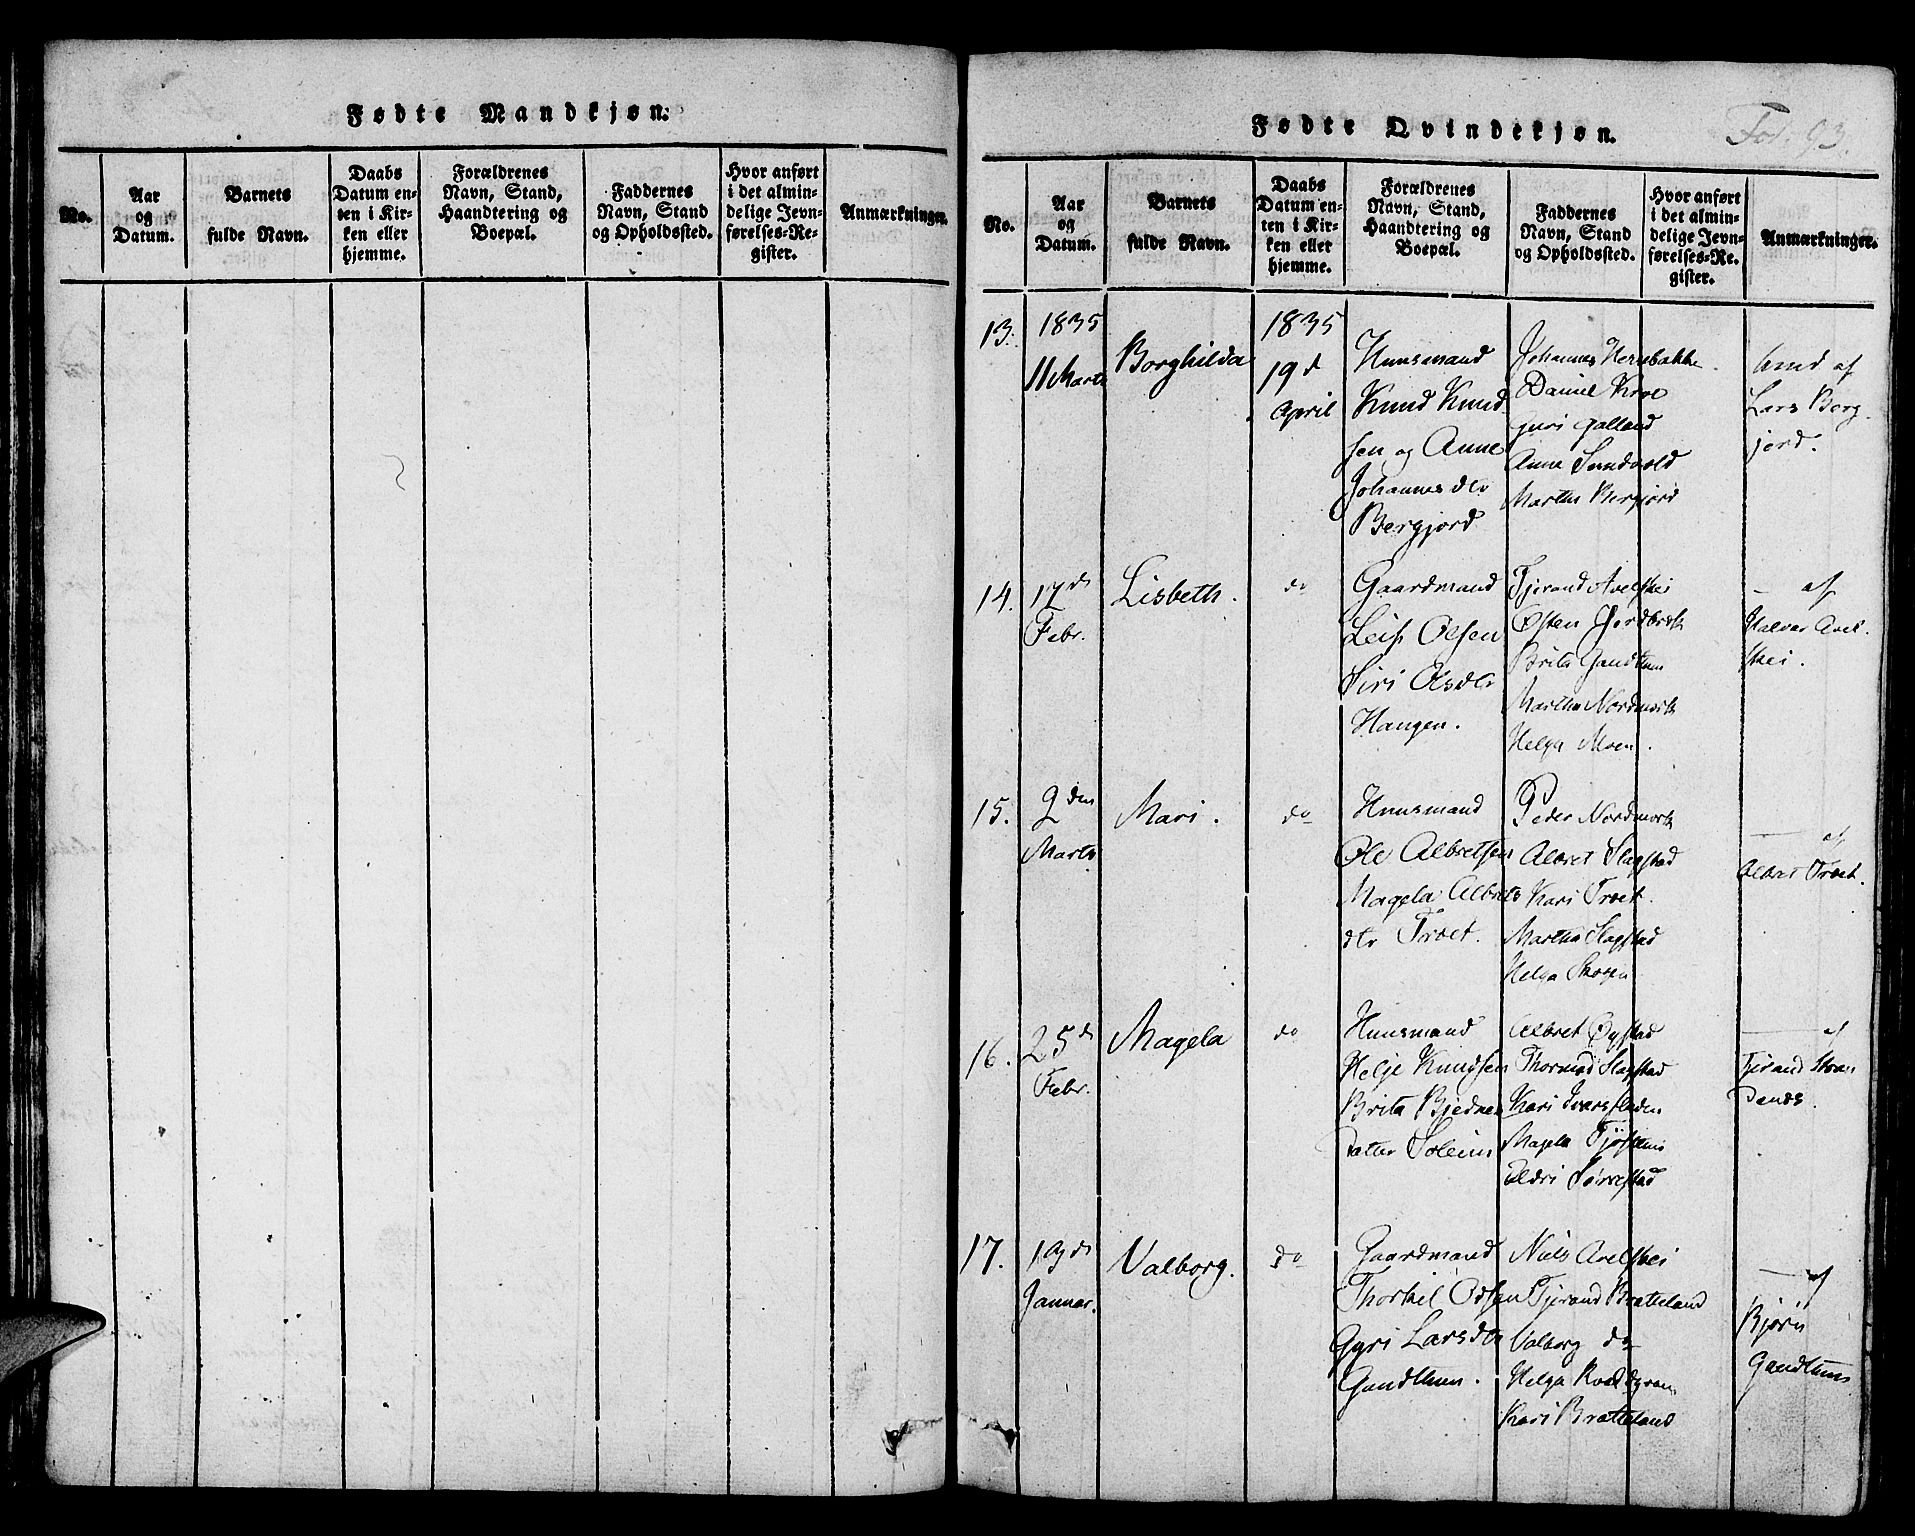 Fødte Mandkjøn.
No.
Aar og Datum.
Barnets fulde Navn.
Daabs Datum enten i Kirken eller hjemme.
Forældrenes Navn, Stand, Haandtering og Boepæl.
Faddernes Navn, Stand og Opholdssted.
Hvor anført i det almindelige Jevnførelses-Register.
Anmærkninger.
Fødte Qvindekjøn.
Fol. 93.
No.
Aar og Datum.
Barnets fulde Navn.
Daabs Datum enten i Kirken eller hjemme.
Forældrenes Navn, Stand, Haandtering og Boepæl.
Faddernes Navn, Stand og Opholdssted.
Hvor anført i det almindelige Jevnførelses-Register.
Anmærkninger.
13.
1835
11 Marts
Borghilda
1835
19 d
April
Huusmand
Knud Knud
sen og Anne
Johannes dtr
Bergjord
Johannes
Daniel Kroe
Guri Galland
Anne Sundvold
Martha Bergjord
af
Lars Berg
jord.
14.
17 ds
Febr.
Lisbeth.
do
Gaardmand
Leif Olsen
Siri Olsdtr
Haugen.
Tjerand Avelskei
Østen
Brita Gundtun
Martha Nordmork
Helga Moen.
– af
Halvor Avel
skei.
15.
2 den
Marts
Mari.
do
Huusmand
Ole Albretsen
Magela Albrets
dtr Træet.
Peder Nordmork
Albret Slagstad
Kari Træet.
Martha Slagstad
Helga
— af
Albret Træet.
16.
25 ds
Febr.
Magela
do
Huusmand
Helje Knudsen
Brita
Datter Soleim
Albret Øystad
Thormod Slagstad
Kari
Magela
Eldri Sørrestad
— af
Tjerand
17.
19 ds
Januar.
Valborg.
do
Gaardmand
Thorkil Odsen
Gyri Larsdtr
Gundthun.
Niels Avelskei
Tjerand Bratteland
Valborg do
Helga
Kari Bratteland
— af
Bjørn
Gundthun